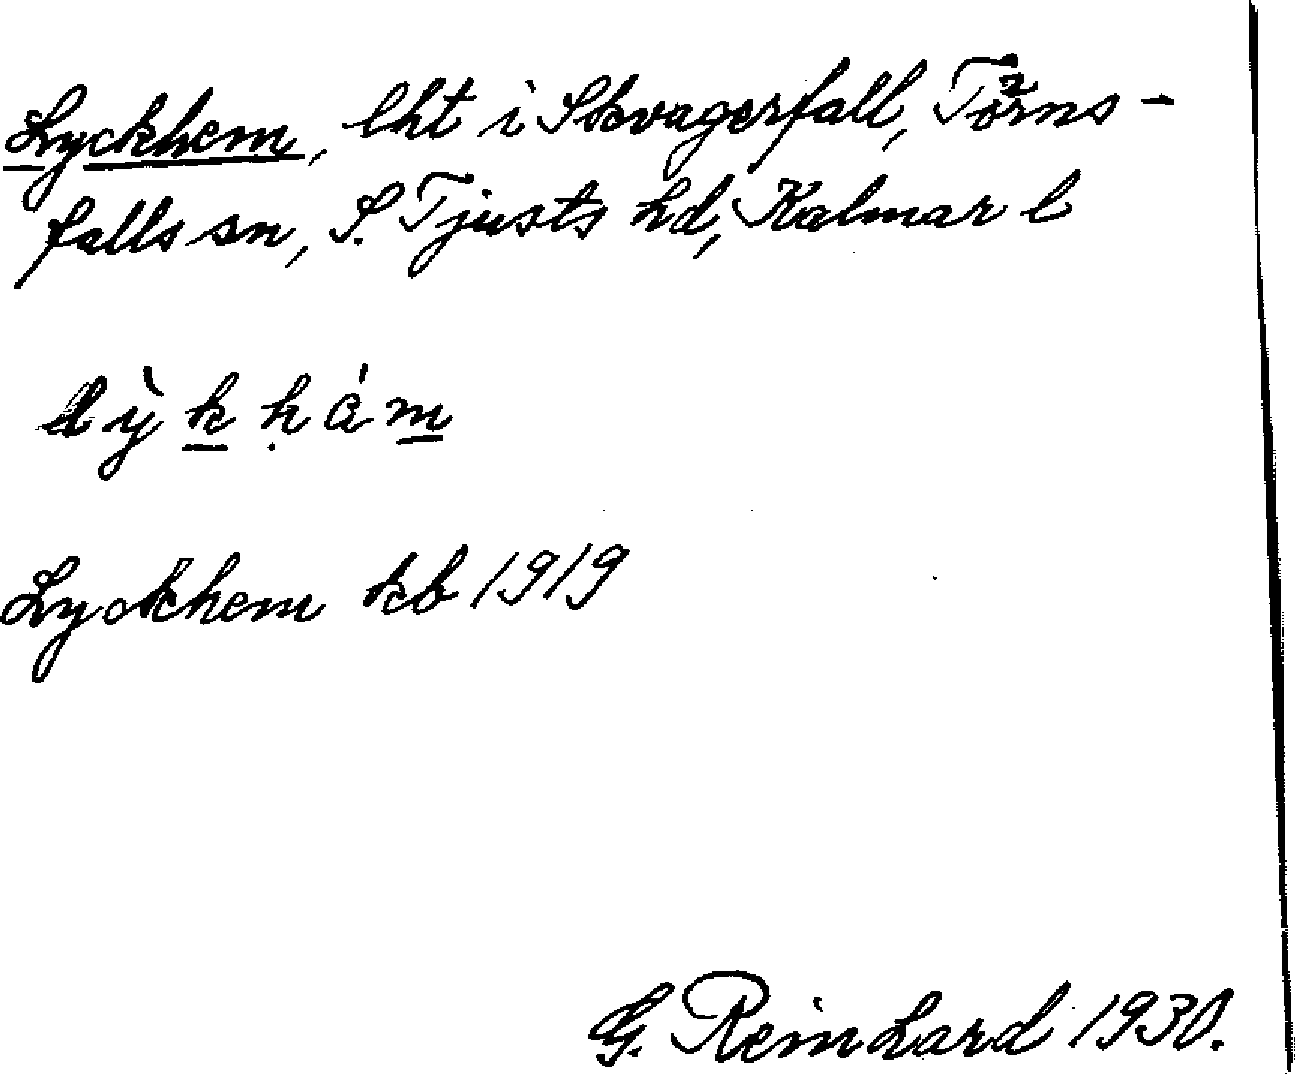 Lyckhem, lht i Skvagerfall, Törns-
falls sn, S. Tjusts hd, Kalmar l
lỳkḥám
Lyckhem kb 1919
G. Reinhard 1930.